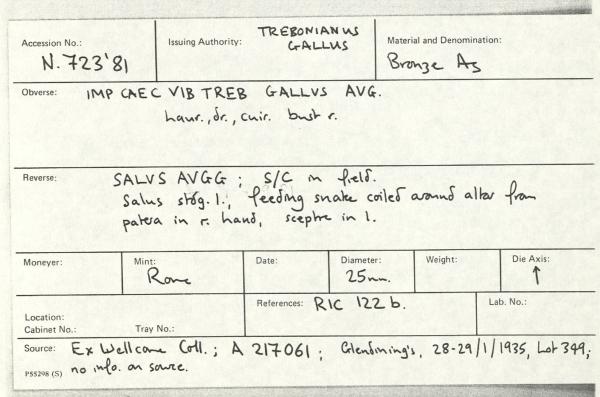 Accession No.: N.723'81
Issuing Authority: TREBONIANUS
GALLUS
Material and Denomination:
Bronze As
Obverse: IMP CAEC VIB TREB GALLVS AVG.
laur., dr., cuir. bust r.
Reverse: SALVS AVGG ; S/C in field.
Salus stdg. l., feeding snake coiled around altar from
patera in r. hand, sceptre in l.
Moneyer:
Mint: Rome
Date:
Diameter: 25mm.
Weight:
Die Axis: ↑
Location:
Cabinet No.: Tray No.:
References: RIC 122 b.
Lab. No.:
Source: Ex Wellcome Coll.; A 217061 ; Glendining's, 28-29/1/1935, Lot 349,;
P55298 (S) no info. on source.